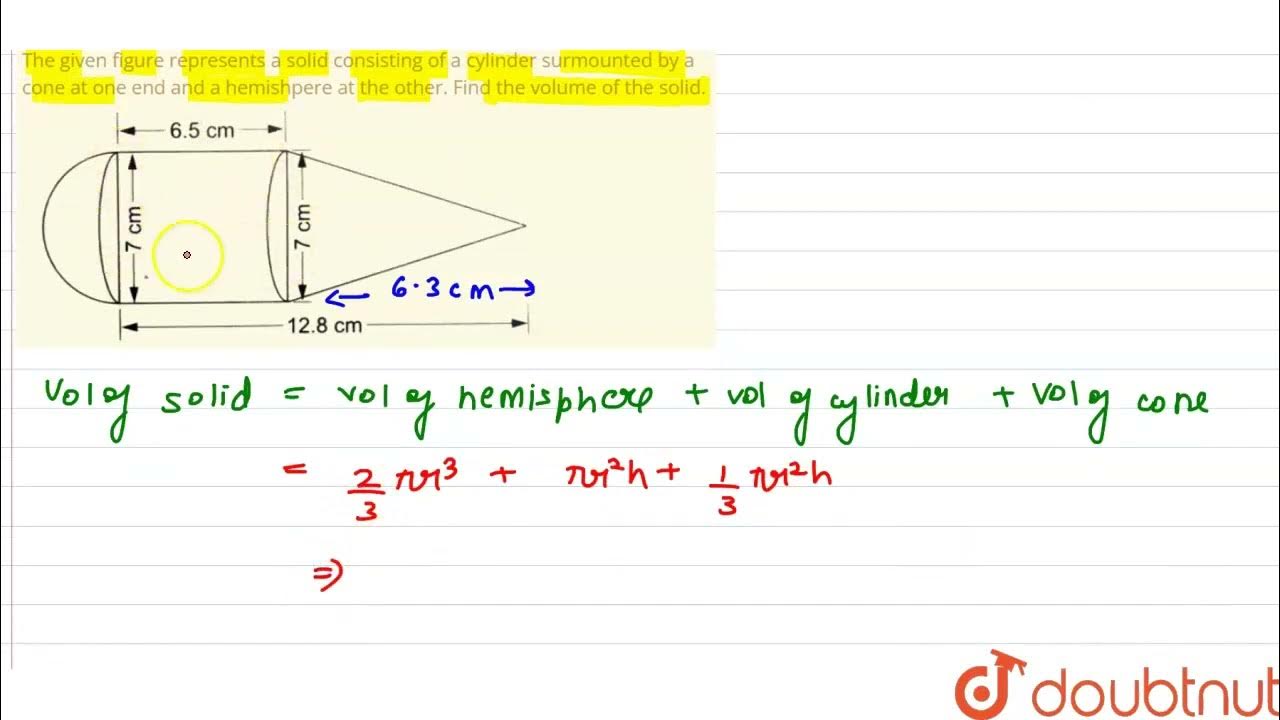 The given figure represents a solid consisting of a cylinder surmounted by a
cone at one end and a hemishpere at the other. Find the volume of the solid.
6.5 cm
7 cm
7 cm
6.3 cm
12.8 cm
Vol of solid = vol of hemisphere + vol of cylinder + Vol of cone
= 2/3 πr³ + πr²h + 1/3 πr²h
⇒
doubtnut